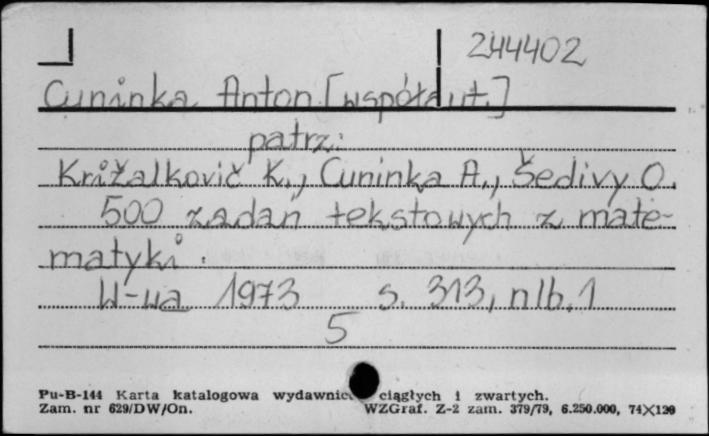 244402
Cuninka Anton [współaut.]
patrz:
Križalkovič K., Cuninka A., Šedivy O.
500 zadań tekstowych z mate-
matyki.
W-wa 1973 s. 313, nlb. 1
5
Pu-B-144 Karta katalogowa wydawnic ciągłych i zwartych.
Zam. nr 629/DW/On. WZGraf. Z-2 zam. 379/79, 6.250.000, 74X120